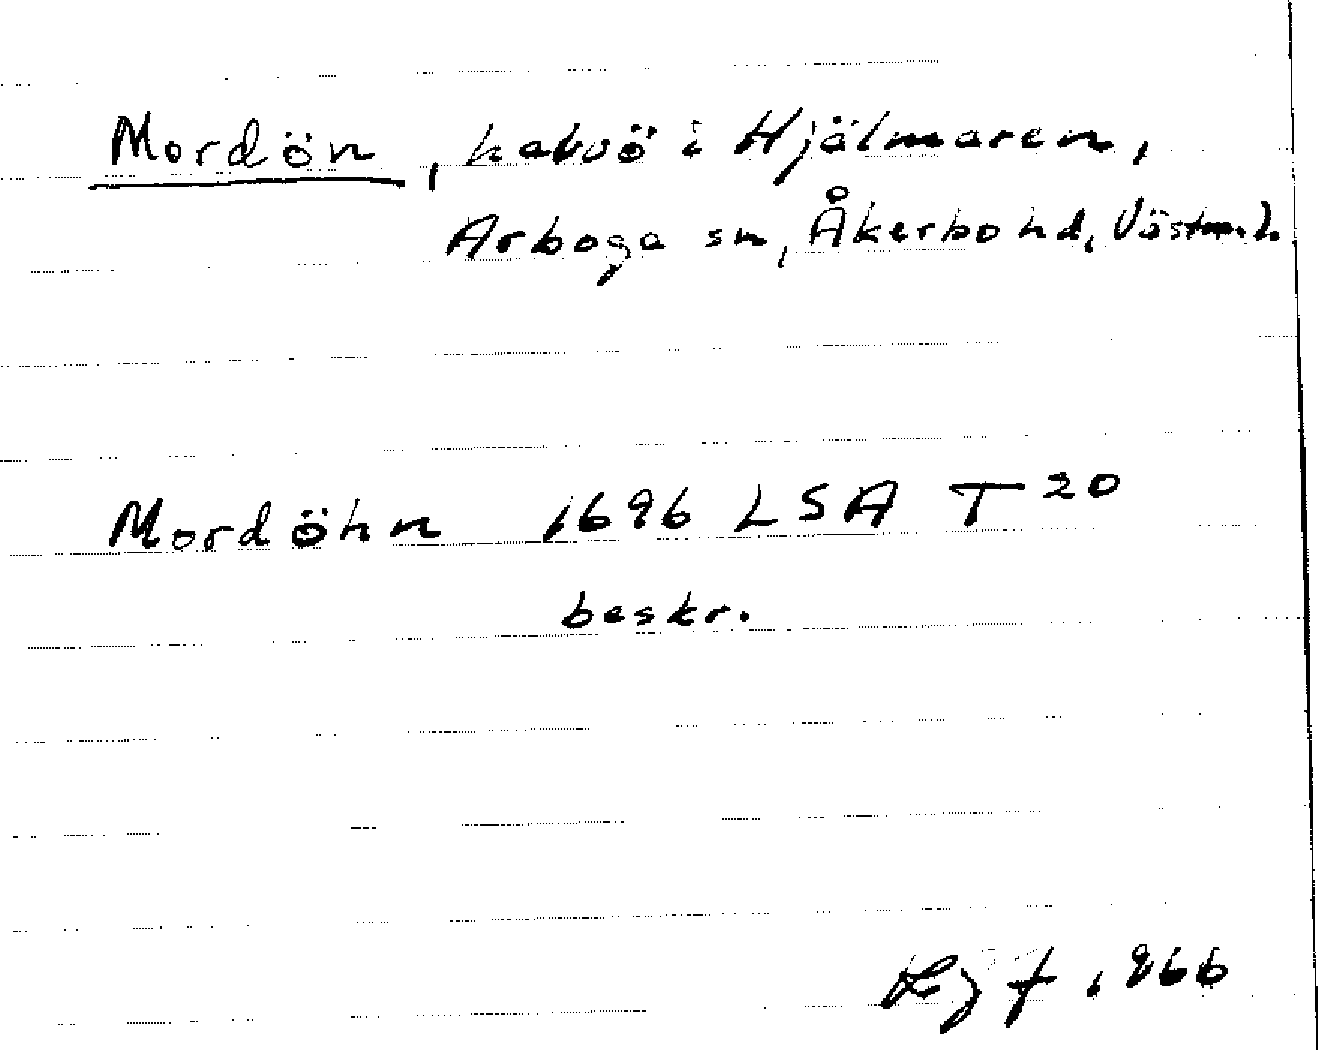 Mordön, halvö i Hjälmaren,
Arboga sn, Åkerbo hd, Västm.l.
Mordöhn 1696 LSA T 20
beskr.